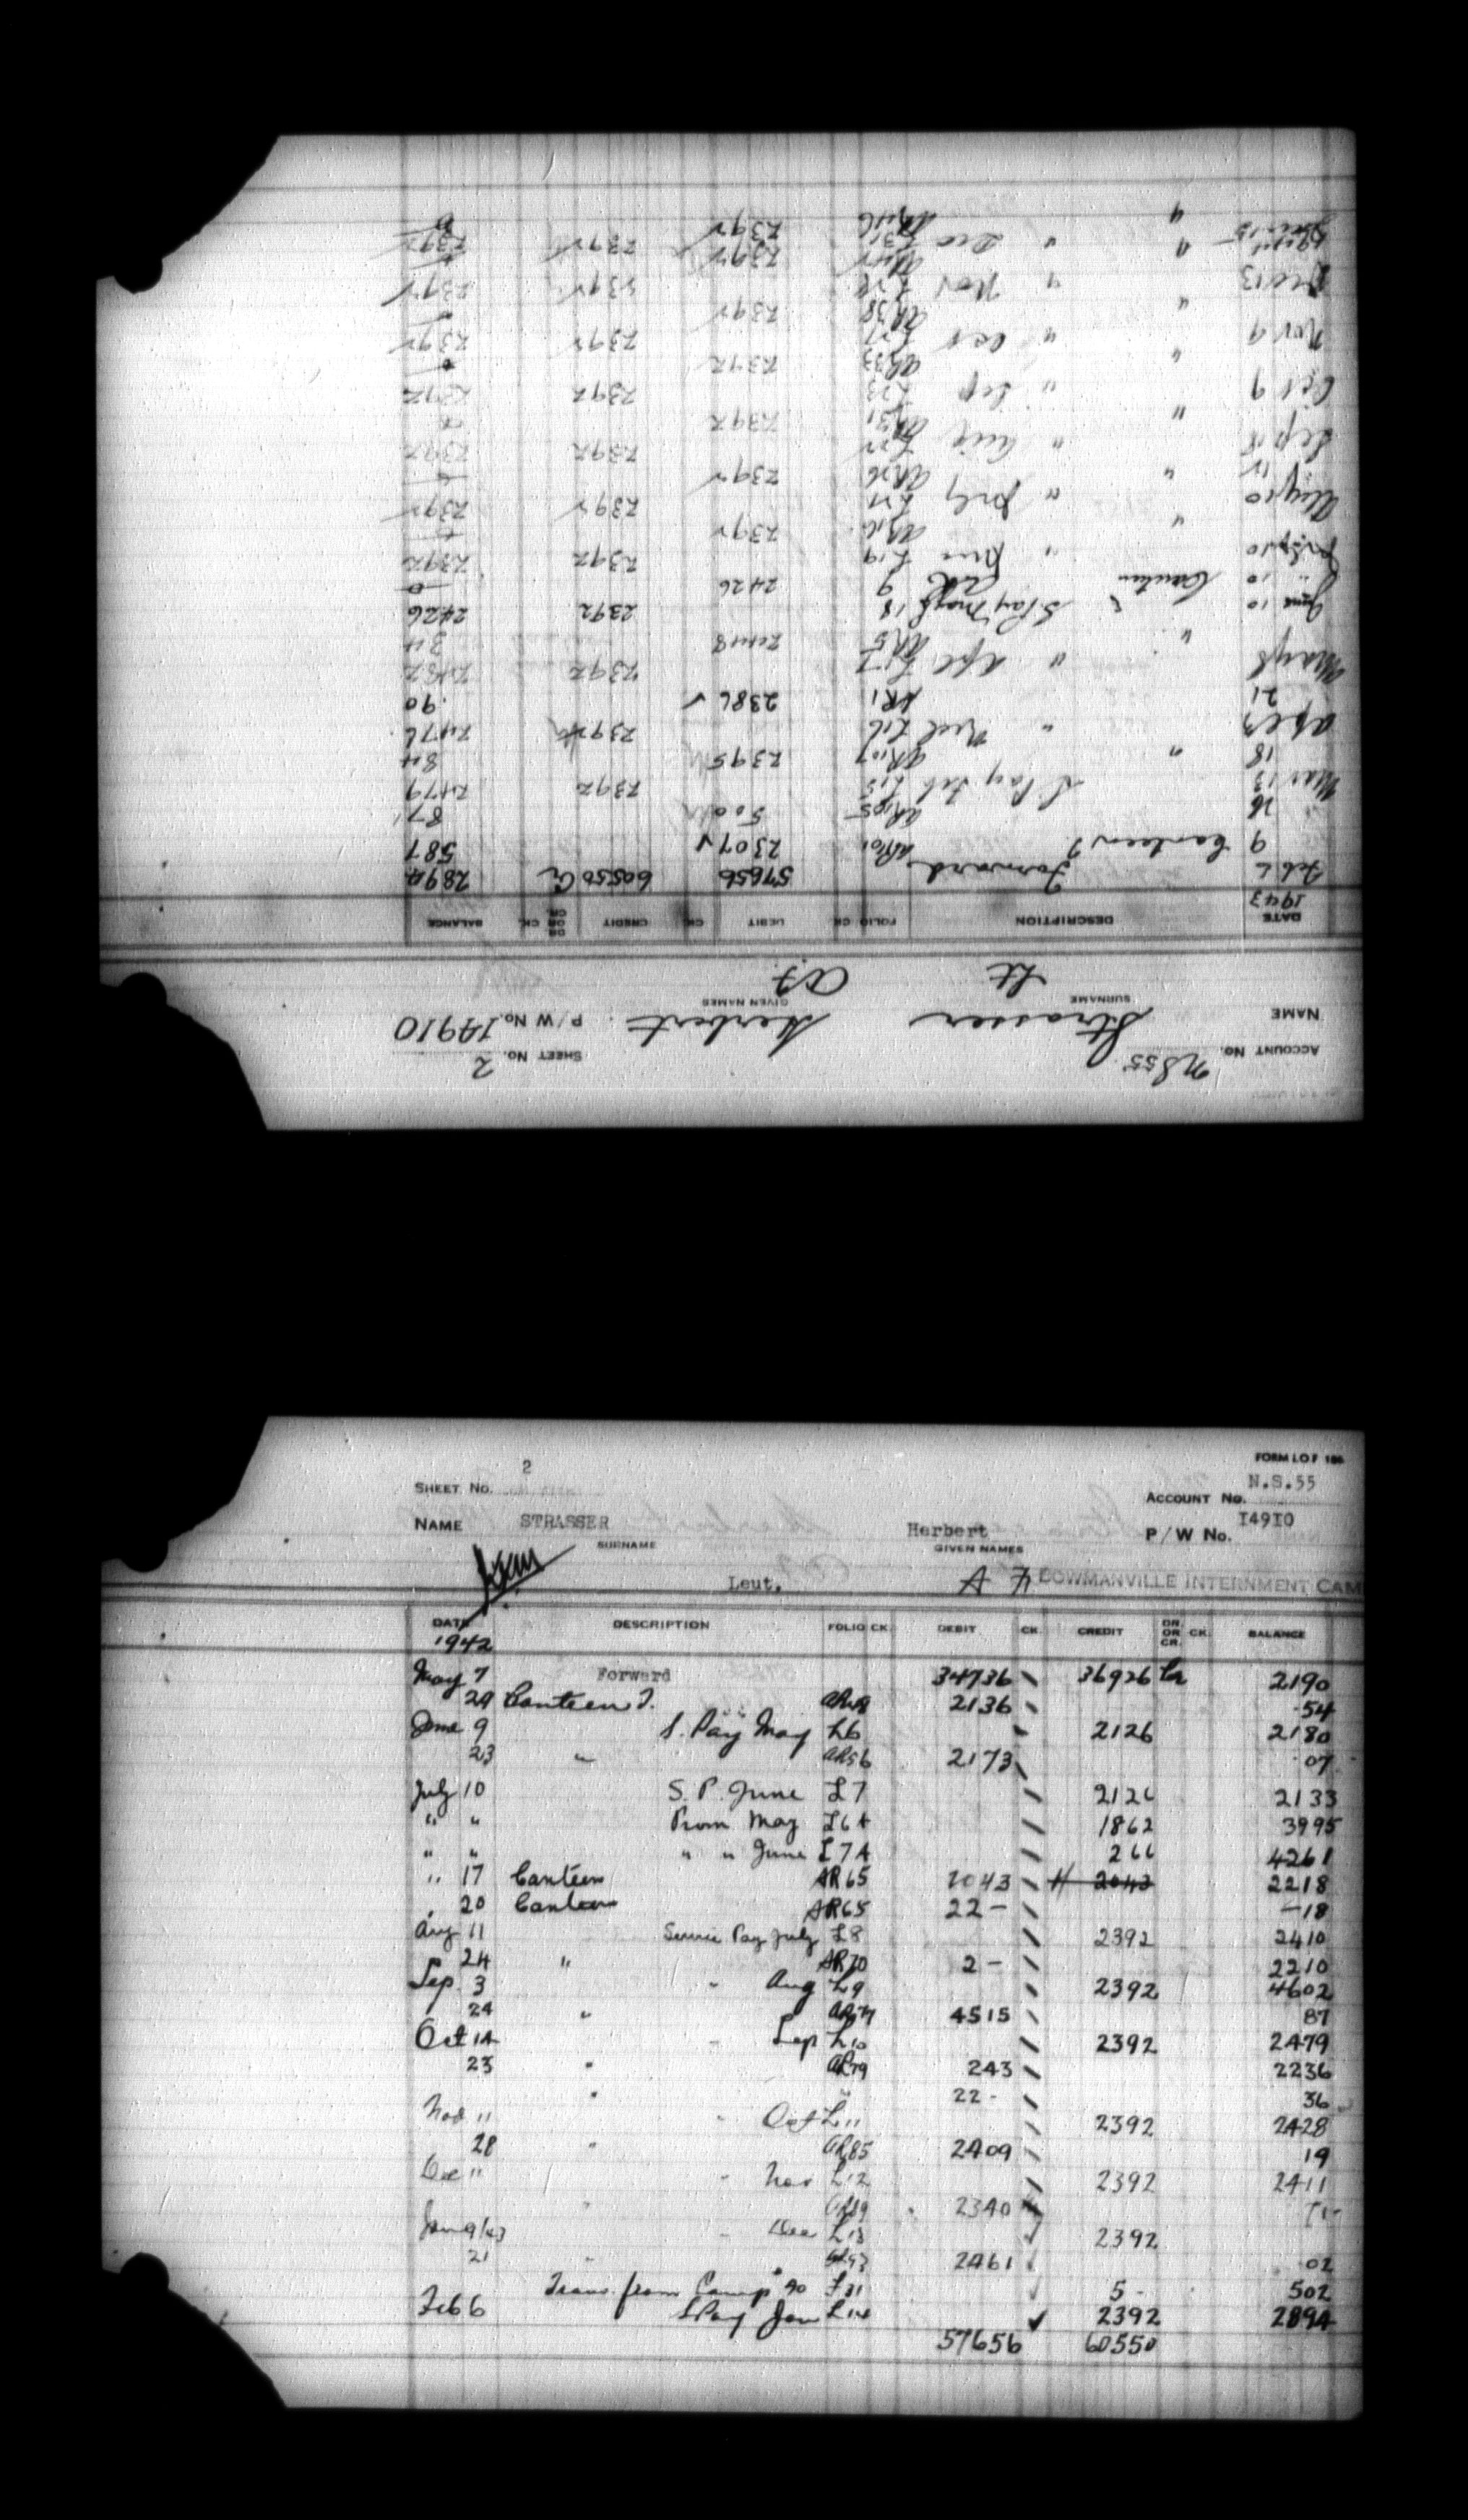 ACCOUNT No. NS55 SHEET No. 2
NAME Strasser Herbert P/W No. 14910
SURNAME GIVEN NAMES
Lt
DATE DESCRIPTION FOLIO CK. DEBIT CK. CREDIT DR. OR CR. CK. BALANCE
1943
Feb 6 Forward 57656 60550 Cr 2894
9 Canteen T. AR101 2307 587
26 AR105 500 87
Mar 13 S Pay Feb L15 2392 2479
18 " AR107 2395 84
Apl 3 " L16 2392 2476
21 AR1 2386 90
May 8 " Apl L17 2392 2482
" AR5 2448 34
June 10 S Pay May L18 2392 2426
" 10 Canteen 9 2426 0
July 10 " June L19 2392 2392
" AR16 2392
Aug 10 " July 2392 2392
" AR26 2392
Sep " Aug 2392 2392
" AR31 2392
Oct 9 " Sep 2392 2392
" AR33 2392
Nov 9 " Oct 2392 2392
" AR38 2392
Dec 13 " Nov 2392 2392
" 2392
" Dec L31 2392 2392
" 2392
FORM LOF
SHEET No. 2 ACCOUNT No. N.S.55
NAME STRASSER Herbert P/W No. I49I0
SURNAME GIVEN NAMES
Leut. A F BOWMANVILLE INTERNMENT CAM
DATE DESCRIPTION FOLIO CK. DEBIT CK. CREDIT DR. OR CR. CK. BALANCE
1942
May 7 Forward 34736 36926 Cr 2190
29 Canteen T. 2136 54
June 9 S. Pay May L6 2126 2180
23 " AR56 2173 07
July 10 S. P. June L7 2126 2133
" " Prom May L6A 1862 3995
" " " " June L7A 266 4261
" 17 Canteen AR65 2043 2043 2218
" 20 Canteen AR65 22- -18
Aug 11 Service Pay July L8 2392 2410
24 " AR70 2- 2210
Sep. 3 " Aug L9 2392 4602
24 " AR74 4515 87
Oct 14 " Sep L10 2392 2479
23 " AR79 243 2236
" 22- 36
Nov 11 " Oct L11 2392 2428
28 " AR85 2409 19
Dec 11 " Nov L12 2392 2411
" AR89 2340 71
Jan 9/43 " Dec L13 2392
21 " AR93 2461 02
Trans. from Camp 90 F31 5- 502
Feb 6 S Pay Jan L14 2392 2894
57656 60550